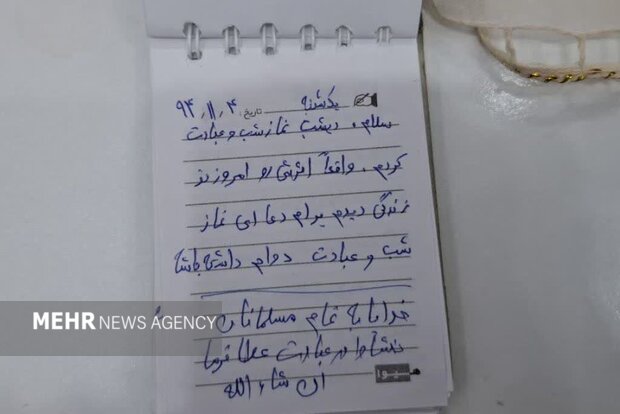 یکشنبه تاریخ: ۹۴/۱۱/۴
سلام، دیشب نماز شب و عبادت
کردم، واقعاً اثرش رو امروز در
زندگی دیدم برام دعا این نماز
شب و عبادت دوام داشته باشه
خدایا به تمام مسلمانان
نشاط در عبادت عطا فرما
ان شاء الله
MEHR NEWS AGENCY